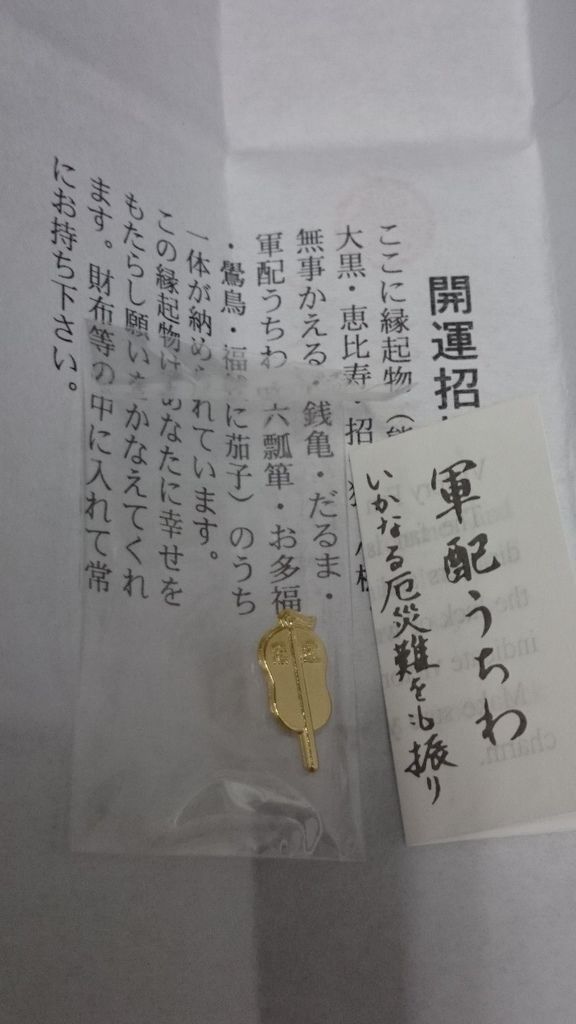 開運招
ここに縁起物（
大黒・恵比寿・招
無事かえる・銭亀・だるま・
軍配うちわ 六瓢箪・お多福
・鷽鳥・福 に茄子）のうち
一体が納め れています。
この縁起物は あなたに幸せを
もたらし願い をかなえてくれ
ます。財布等の中に入れて常
にお持ち下さい。
軍配うちわ
いかなる厄災難をも振り